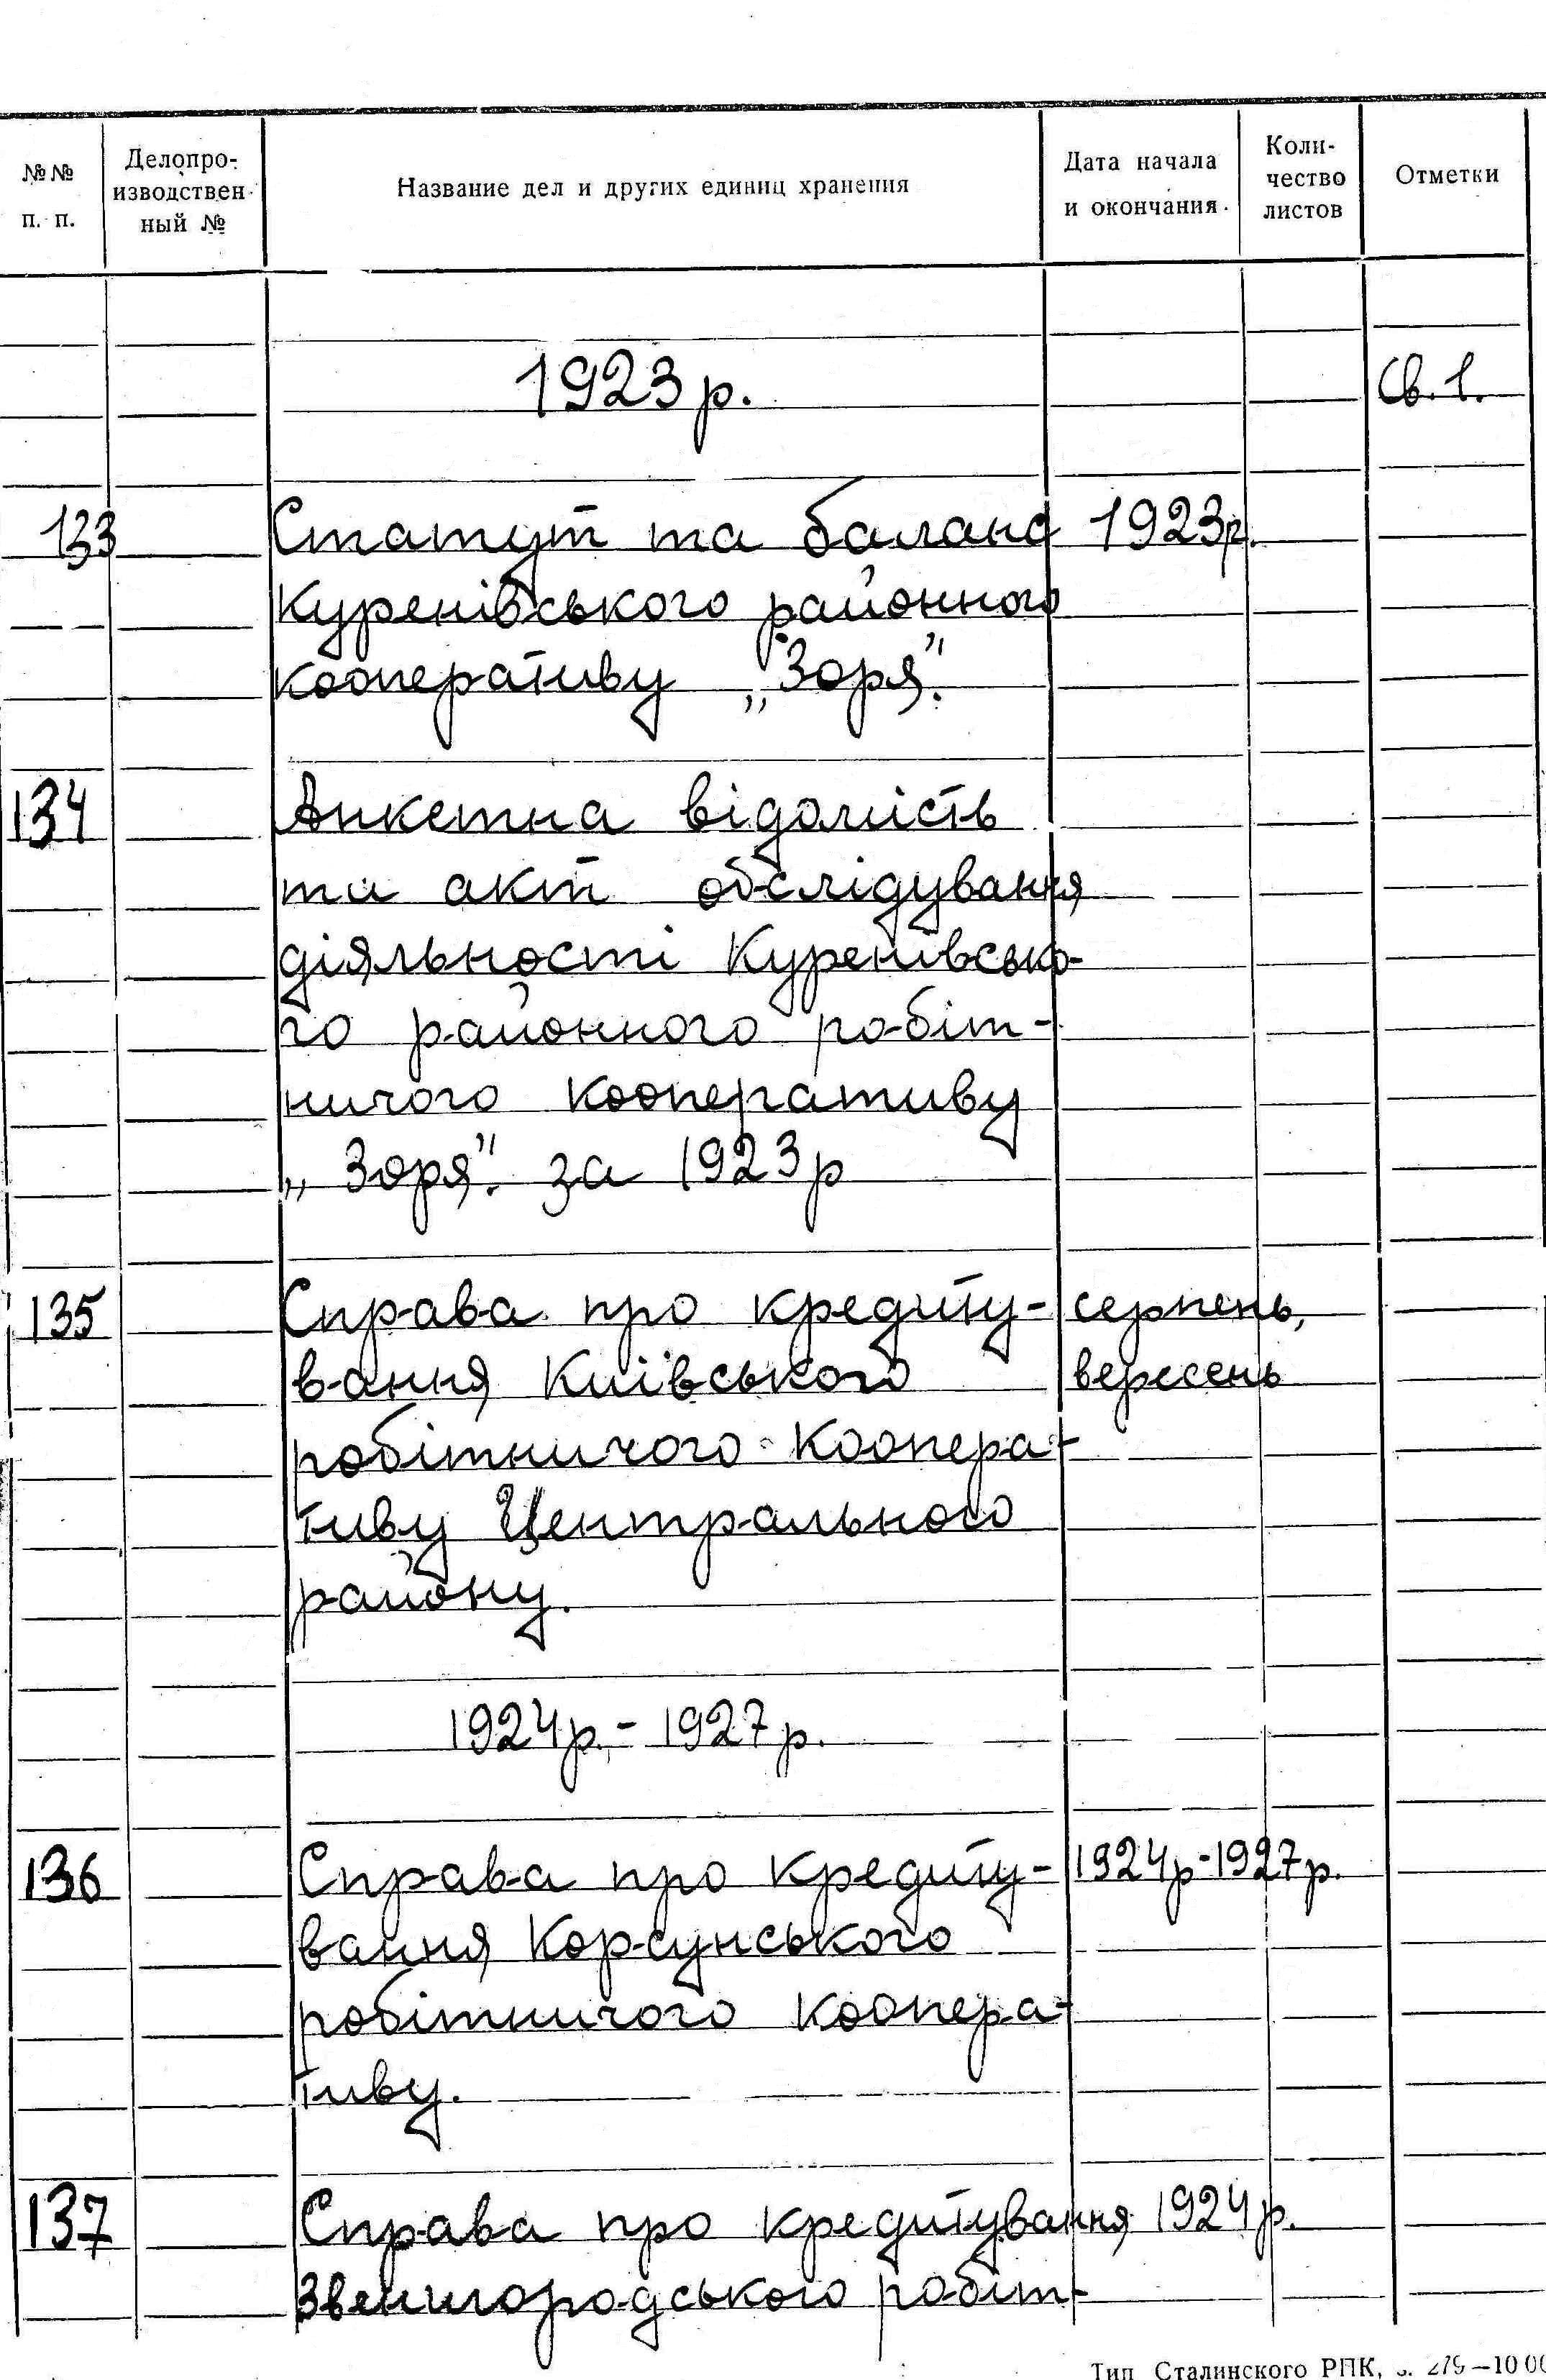 №№ п. п. Делопро- изводствен- ный № Название дел и других единиц хранения Дата начала и окончания. Коли- чество листов Отметки
1923 р. Св. 1.
133 Статут та баланс 1923р.
Куренівського районного
кооперативу „Зоря".
134 Анкетна відомість
та акт обслідування
діяльності Куренівсько-
го районного робіт-
ничого кооперативу
„Зоря". за 1923р
135 Справа про кредиту- серпень,
вання Київського вересень
робітничого коопера-
тиву Центрального
району.
1924р. - 1927р.
136 Справа про кредиту- 1924р-1927р.
вання Корсунського
робітничого коопера-
тиву.
137 Справа про кредитування 1924р.
Звенигородського робіт-
Тип Сталинского РПК, з. 279—10 00